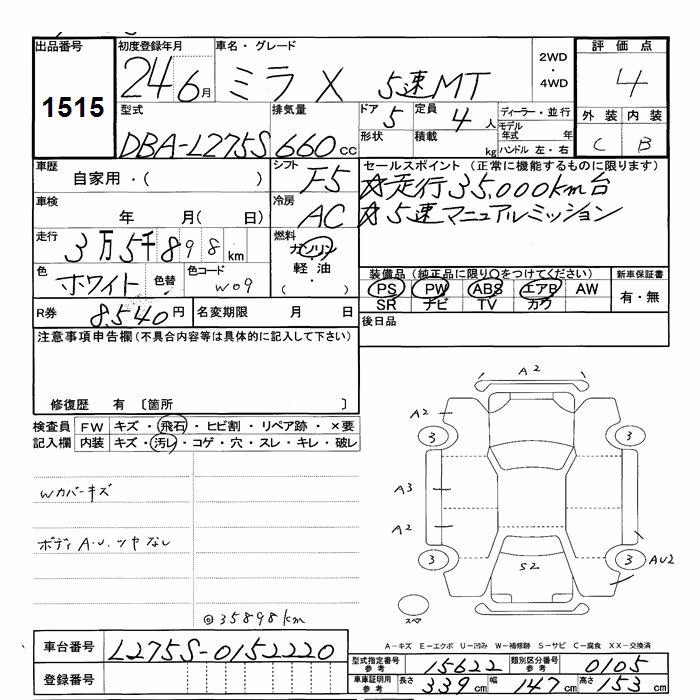 出品番号 初度登録年月 車名・グレード 2WD・4WD 評価点
1515 24 6月 ミラ X 5速MT 4
型式 排気量 ドア 5 定員 4人 ディーラー・並行 外装 内装
DBA-L275S 660cc 形状 積載 kg モデル年式 年 C B
ハンドル 左・右
車歴 シフト セールスポイント (正常に機能するものに限ります)
自家用・( ) F5 ☆走行35,000km台
車検 冷房 ☆5速マニュアルミッション
年 月( 日) AC
走行 3万5千898km 燃料
ガソリン
色 色替 色コード 軽油 装備品(純正品に限り○をつけてください) 新車保証書
ホワイト W09 ・( ) PS PW ABS エアB AW 有・無
SR ナビ TV カワ
R券 8,540円 名変期限 月 日 後日品
注意事項申告欄(不具合内容等は具体的に記入して下さい)
修復歴 有 〔箇所 〕
検査員 FW キズ・飛石・ヒビ割・リペア跡・×要
記入欄 内装 キズ・汚レ・コゲ・穴・スレ・キレ・破レ
Wカバーキズ
ボディA.U.ツヤなし
◎35898km
A2
A2
3 3
A3
A2
3 S2 3 AU2
スペア
A-キズ E-エクボ U-凹み W-補修跡 S-サビ C-腐食 XX-交換済
車台番号 L275S-0152220
登録番号
型式指定番号 参考 15622 類別区分番号 参考 0105
車庫証明用 参考 長さ 339cm 幅 147cm 高さ 153cm